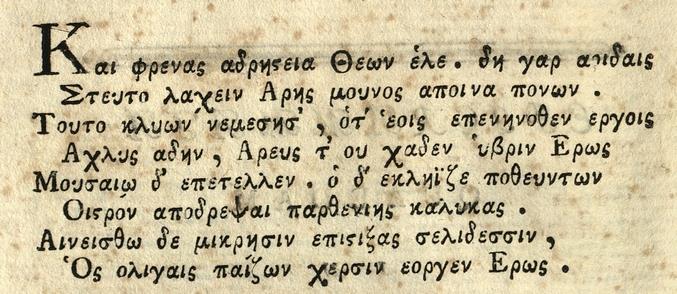 Και φρενας αδρηϛεια Θεων ἑλε . δη γαρ αυδαις
Στευτο λαχειν Αρης μουνος αποινα πονων .
Τουτο κλυων νεμεσησ' , ὁτ' ἑοις επενηνοθεν εργοις
Αχλυς αδην , Αρευς τ' ου χαδεν ὑβριν Ερως
Μουσαιω δ' επετελλεν . ὁ δ' εκληϊζε ποθευντων
Οιϛρόν αποδρεψαι παρθενιης καλυκας .
Αινεισθω δε μικρησιν επιϛιξας σελιδεσσιν ,
Ὁς ολιγαις παίζων χερσιν εοργεν Ερως .